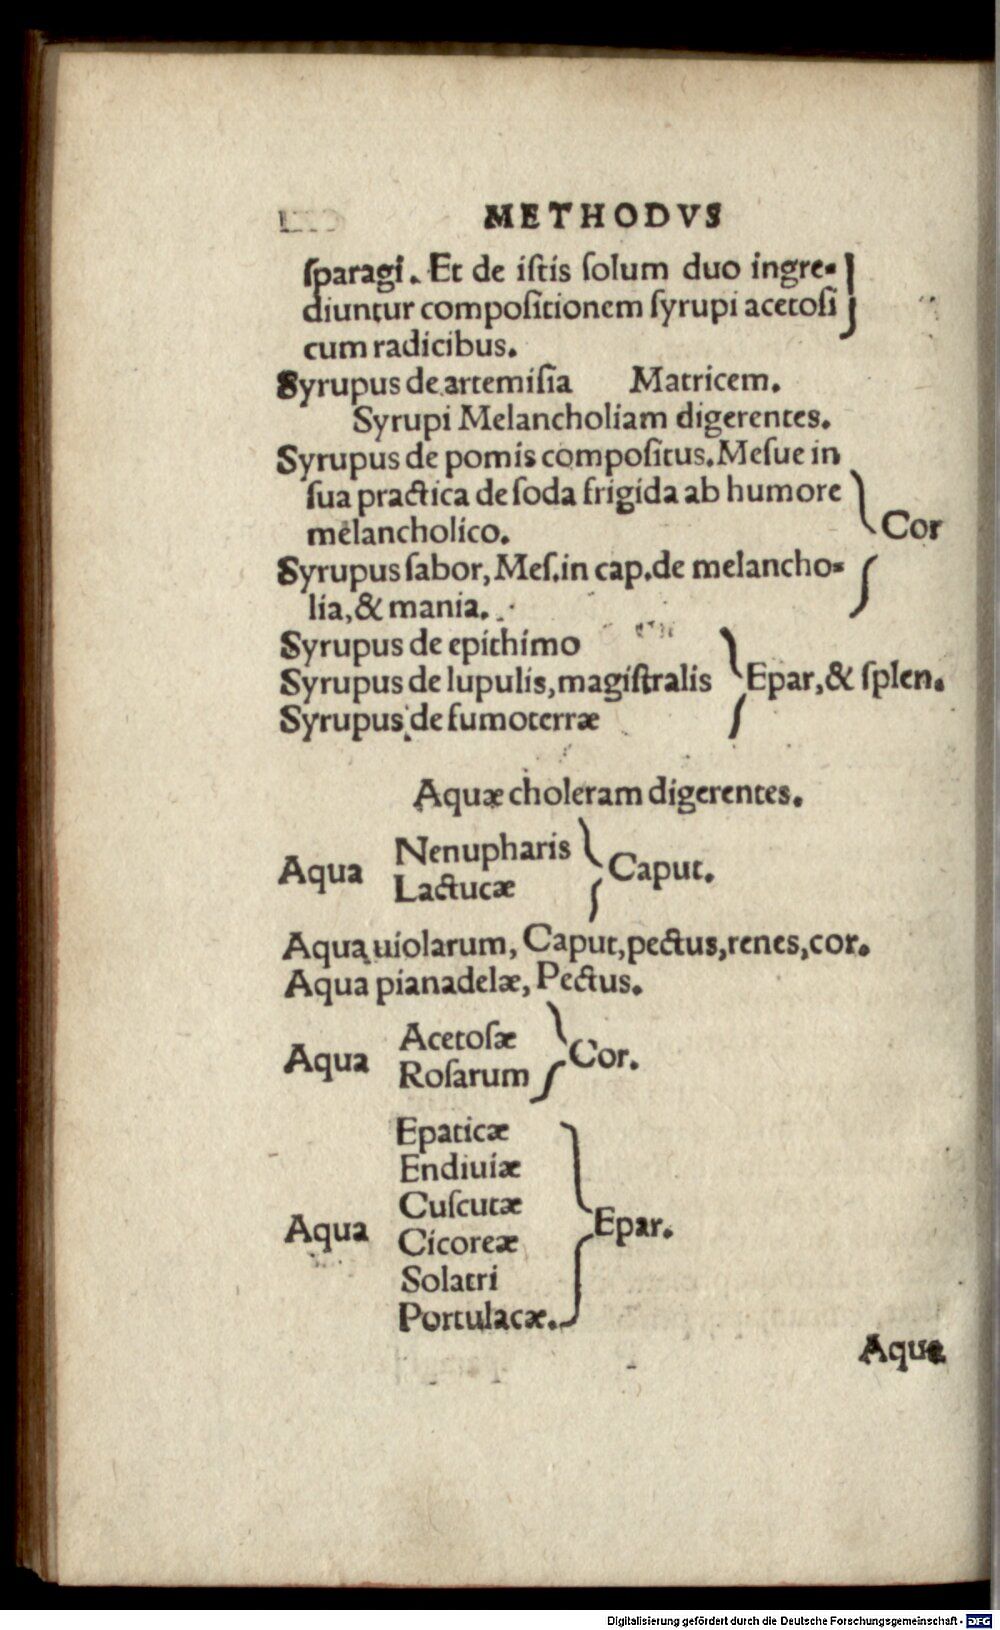 METHODVS
ſparagi. Et de iſtis ſolum duo ingre-
diuntur compoſitionem ſyrupi acetoſi
cum radicibus.
Syrupus de artemiſia Matricem.
Syrupi Melancholiam digerentes.
Syrupus de pomis compoſitus. Meſue in
ſua practica de ſoda frigida ab humore
melancholico.
Cor
Syrupus ſabor, Meſ. in cap. de melancho-
lia, & mania.
Syrupus de epithimo
Syrupus de lupulis, magiſtralis Epar, & ſplen.
Syrupus de fumoterræ
Aquæ choleram digerentes.
Aqua
Nenupharis
Lactucæ
Caput.
Aqua uiolarum, Caput, pectus, renes, cor.
Aqua pianadelæ, Pectus.
Aqua
Acetoſæ
Roſarum
Cor.
Aqua
Epaticæ
Endiuiæ
Cuſcutæ
Cicoreæ
Solatri
Portulacæ.
Epar.
Aquæ
Digitalisierung gefördert durch die Deutsche Forschungsgemeinschaft - DFG